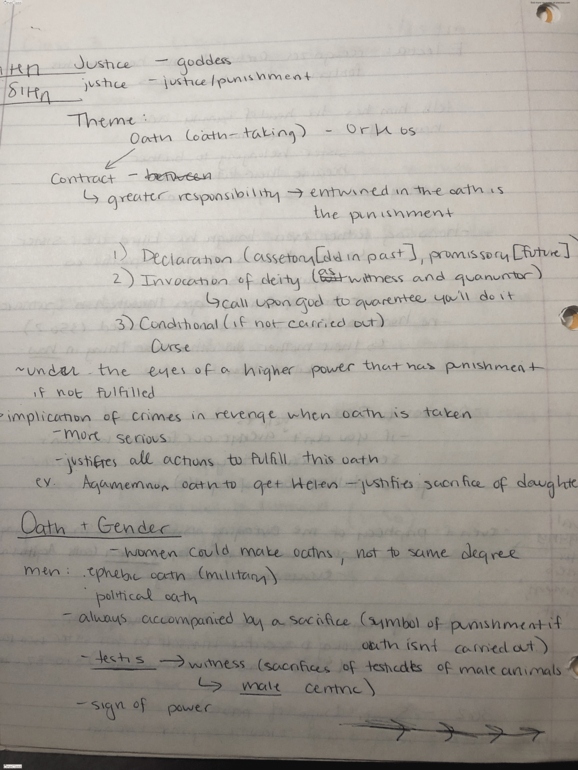 Justice - goddess
δικη justice - justice/punishment
Theme:
Oath (oath-taking) - Orkos
Contract - between
↳ greater responsibility → entwined in the oath is
the punishment
1) Declaration (assetory [did in past], promissory [future]
2) Invocation of deity (as witness and guanuntor)
↳ call upon god to guarentee you'll do it
3) Conditional (if not carried out)
Curse
~under the eyes of a higher power that has punishment
if not fulfilled
implication of crimes in revenge when oath is taken
- more serious
- justifies all actions to fulfill this oath
ex. Agamemnon oath to get Helen - justifies sacrifice of daughte
Oath + Gender
- women could make oaths, not to same degree
men: ephebic oath (military)
political oath
- always accompanied by a sacrifice (symbol of punishment if
oath isnt carried out)
- testis → witness (sacrifices of testicles of male animals
↳ male centric)
- sign of power